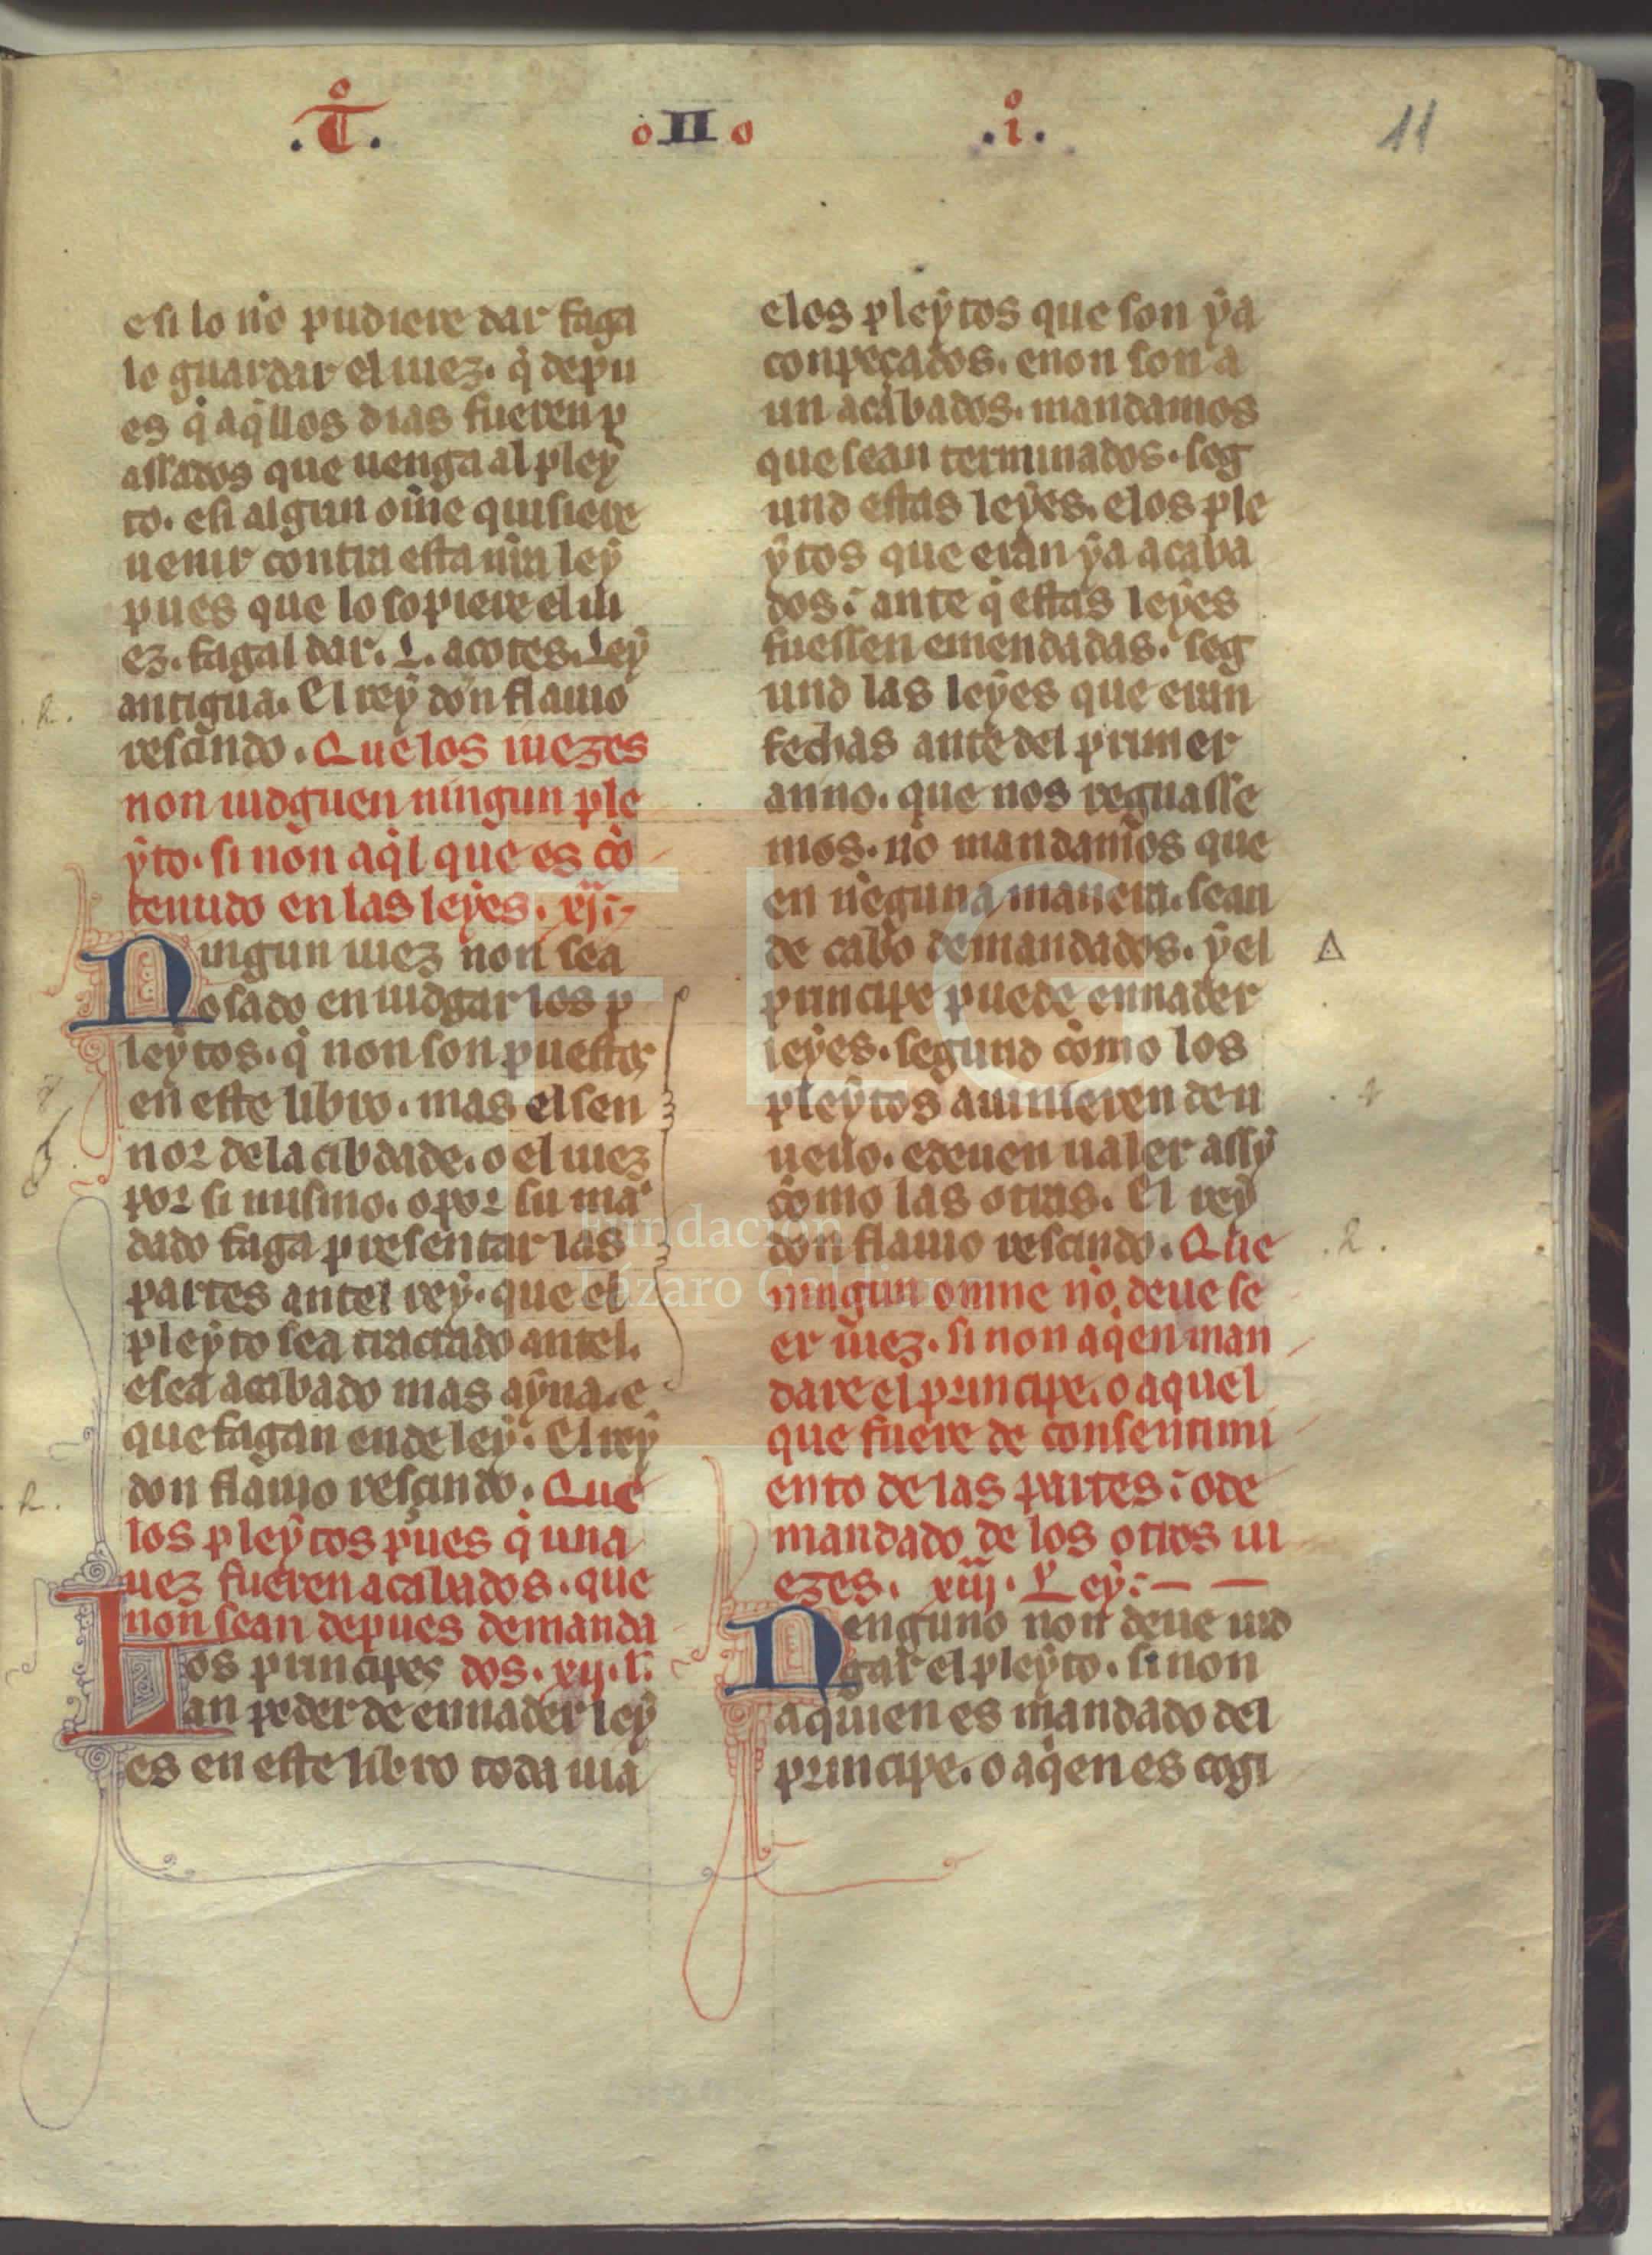 .T̊.
II
.i̊.
11
e si lo nõ pudiere dar faga
lo guardar el iuez. q̃ depu
es q̃ aq̃llos dias fueren p
assados que uenga al pley
to. e si algun om̃e quisiere
uenir contra esta nr̃a ley
pues que lo sopiere el iu
ez. fagal dar. L. açotes. Ley
antigua. El rey don flauio
resçindo. Que los iuezes
non iudguen ningun ple
yto. si non aq̃l que es cõ
tenudo en las leyes. xj.
Ningun iuez non sea
osado en iudgar los p
leytos. q̃ non son puestos
en este libro. mas el sen
nor de la cibdade. o el iuez
por si mismo. o por su mã
dado faga presentar las
partes antel rey. que el
pleyto sea tractado antel.
e sea acabado mas ayna. e
que fagan ende ley. El rey
don flauio resçindo. Que
los pleytos pues q̃ una
uez fueren acabados. que
non sean depues demanda
Los principes dos. xij. l.
an poder de ennader ley
es en este libro toda uia
e los pleytos que son ya
conpeçados. e non son a
un acabados. mandamos
que sean terminados. seg
und estas leyes. e los ple
ytos que eran ya acaba
dos: ante q̃ estas leyes
fuessen emendadas. seg
und las leyes que eran
fechas ante del primer
anno. que nos regnasse
mos. nõ mandamos que
en nẽguna manera. sean
de cabo demandados. y el
principe puede ennader
leyes. segund cõmo los
pleytos auinieren de n
ueuo. e deuen ualer assy
cõmo las otras. El rey
don flauio resçindo. Que
ningun omne nõ deue se
er iuez. si non aq̃en man
dare el principe. o aquel
que fuere de consentimi
ento de las partes: o de
mandado de los otros iu
ezes. xiij. Ley:
Nenguno non deue iud
gar el pleyto. si non
a quien es mandado del
principe. o aq̃en es cogi
.R.
.R.
.R.
Fundación
Lázaro Galdiano
FLG